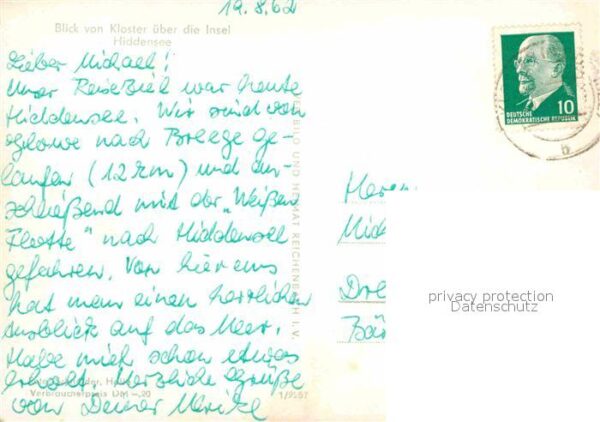 19.8.62
Blick von Kloster über die Insel
Hiddensee
Lieber Michael!
Unser Reiseziel war heute
Hiddensee. Wir sind von
Glowe nach Breege ge-
laufen (12 km) und an-
schließend mit der „Weißen
Flotte" nach Hiddensee
gefahren. Von hier aus
hat man einen herrlichen
Ausblick auf das Meer.
Habe mich schon etwas
erholt. Herzliche Grüße
von Deiner Ulrike
Verbraucherpreis DM -,20
BILD UND HEIMAT REICHENBACH I. V.
10
DEUTSCHE
DEMOKRATISCHE REPUBLIK
b
Herrn
Mich
Dre
Bär
privacy protection
Datenschutz